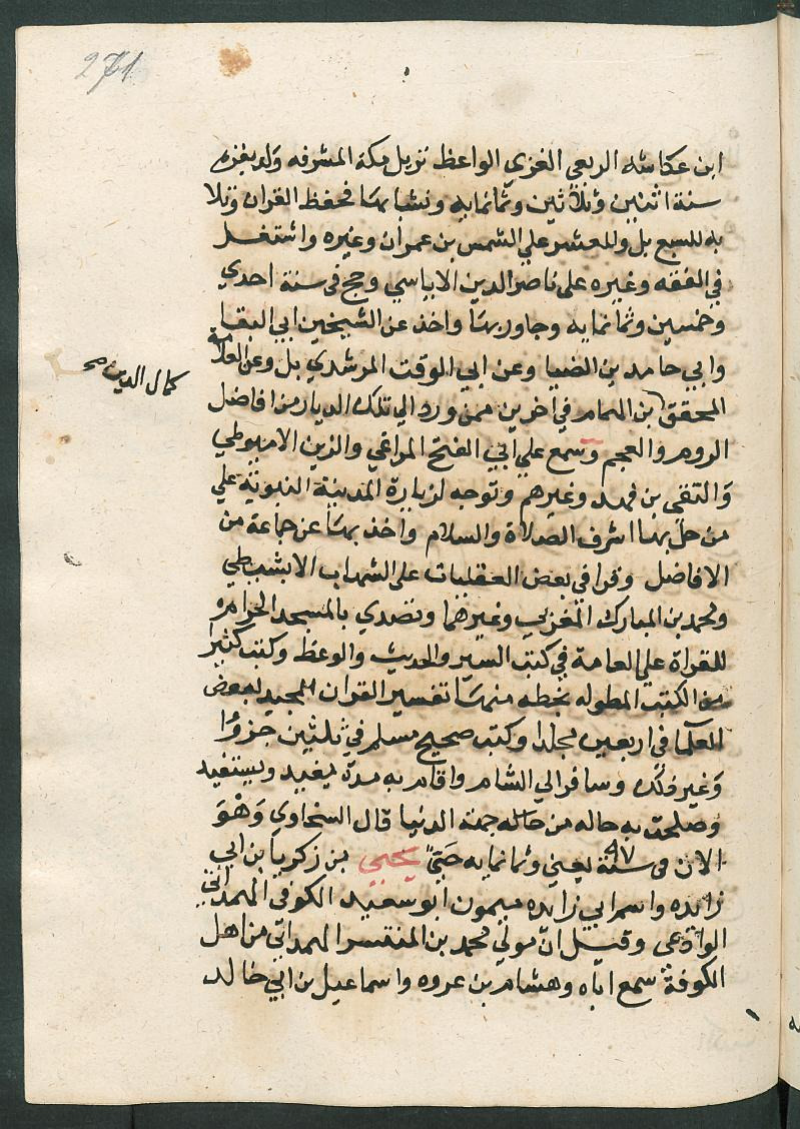 271
ابن عكاشه الربعي الغزي الواعظ نزيل مكة المشرفه ولد بغزه
سنة اثنين وثلاثين وثمانمايه ونشا بها فحفظ القران وتلا
به للسبع بل وللعشر علي الشمس بن عمران وغيره واشتغل
في الفقه وغيره على ناصر الدين الاياسي وحج في سنة احدي
وخمسين وثمانمايه وجاور بها واخذ عن الشيخين ابي البقا
وابي حامد بن الضيا وعن ابي الوقت المرشدي بل وعن العلامة
كمال الدين صح
المحقق بن الهمام في آخرين ممن ورد الي تلك الديار من افاضل
الروم والعجم وسمع علي ابي الفتح المراغي والزين الاميوطي
والتقي بن فهد وغيرهم وتوجه لزيارة المدينة النبوية علي
من حل بها اشرف الصلاة والسلام واخذ بها عن جماعة من
الافاضل وقرا في بعض العقليات على الشهاب الابشيطي
ومحمد بن المبارك المغربي وغيرهما وتصدي بالمسجد الحرام
للقراة علي العامة في كتب السير والحديث والوعظ وكتب كثيرا
من الكتب المطوله بخطه منها تفسير القران المجيد لبعض
العلما في اربعين مجلدا وكتب صحيح مسلم في ثلثين جزوا
وغير ذلك وسافر الي الشام واقام به مدة يفيد ويستفيد
وصلحت به حاله من جهة الدنيا قال السخاوي وهو
الان في سنة ٩٧ يعني وثمانمايه حي يحيي بن زكريا بن ابي
زايده واسم ابي زايده ميمون ابو سعيد الكوفي الهمداني
الوادعي وقيل ان مولي محمد بن المنتشر الهمداني من اهل
الكوفة سمع اباه وهشام بن عروه واسماعيل بن ابي خالد